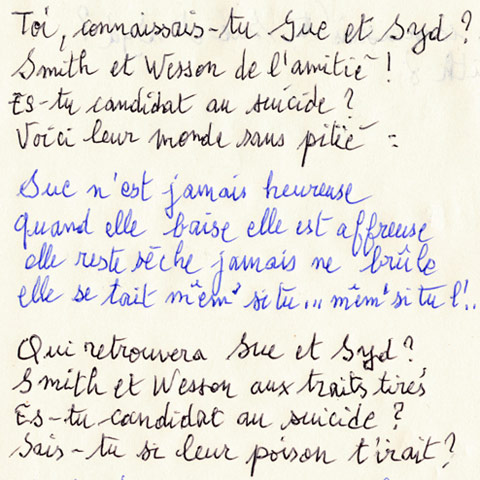 Toi, connaissais-tu Sue et Syd ?
Smith et Wesson de l'amitié !
Es-tu candidat au suicide ?
Voici leur monde sans pitié :
Sue n'est jamais heureuse
quand elle baise elle est affreuse
elle reste sèche jamais ne brûle
elle se tait mêm' si tu... mêm' si tu l'..
Qui retrouvera Sue et Syd ?
Smith et Wesson aux traits tirés
Es-tu candidat au suicide ?
Sais-tu si leur poison t'irait ?